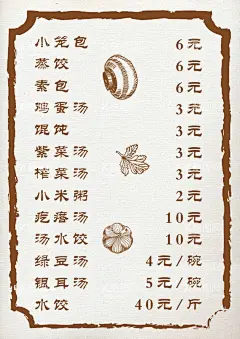 小笼包 6元
蒸饺 6元
素包 6元
鸡蛋汤 3元
馄饨 3元
紫菜汤 3元
榨菜汤 3元
小米粥 2元
疙瘩汤 10元
汤水饺 10元
绿豆汤 4元/碗
银耳汤 5元/碗
水饺 40元/斤